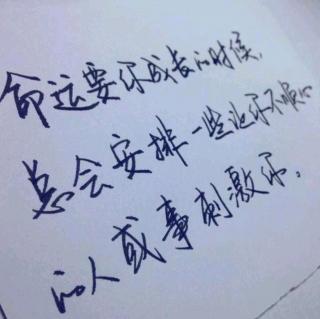 命运要你成长的时候,
总会安排一些让你不顺心
的人或事刺激你。